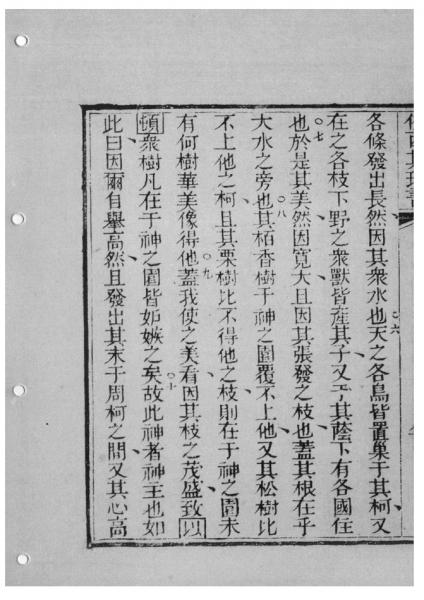 各條發出長然因其衆水也〇六天之各鳥皆置巢于其柯又
在之各枝下野之衆獸皆產其子又于其蔭下有各國住
也〇七於是其美然因寬大且因其張發之枝也蓋其根在乎
大水之旁也〇八其栢香樹于神之園覆不上他又其松樹比
不上他之柯且其栗樹比不得他之枝則在于神之園未
有何樹華美像得他〇九蓋我使之美看因其枝之茂盛致以
頓衆樹凡在于神之園皆妬嫉之矣〇十故此神者神主也如
此曰因爾自舉高然且發出其末于周柯之間又其心高